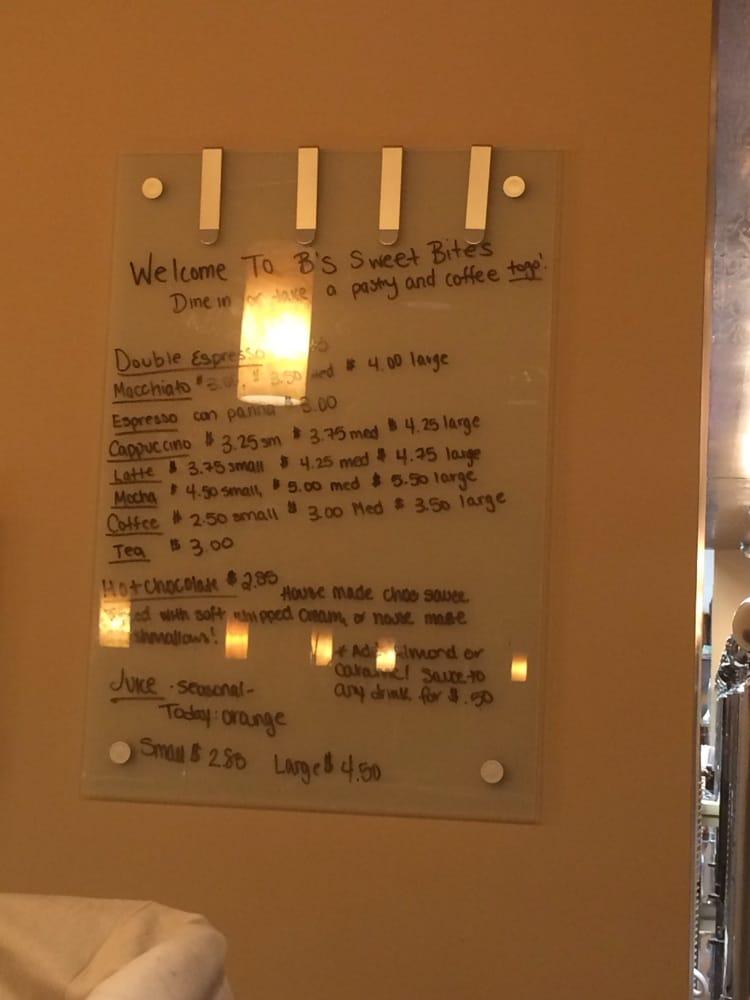 Welcome To B's Sweet Bites
Dine in or take a pastry and coffee togo!
Double Espresso
Macchiato $ 3.00, $ 3.50 med $ 4.00 large
Espresso con panna $ 3.00
Cappuccino $ 3.25 sm $ 3.75 med $ 4.25 large
Latte $ 3.75 small $ 4.25 med $ 4.75 large
Mocha $ 4.50 small, $ 5.00 med $ 5.50 large
Coffee $ 2.50 small $ 3.00 Med $ 3.50 large
Tea $ 3.00
Hot Chocolate $ 2.85 House made choc sauce
with soft whipped cream, or house made
marshmallows!
+ Add almond or
caramel sauce to
any drink for $.50
Juice - seasonal -
Today: orange
Small $ 2.85 Large $ 4.50